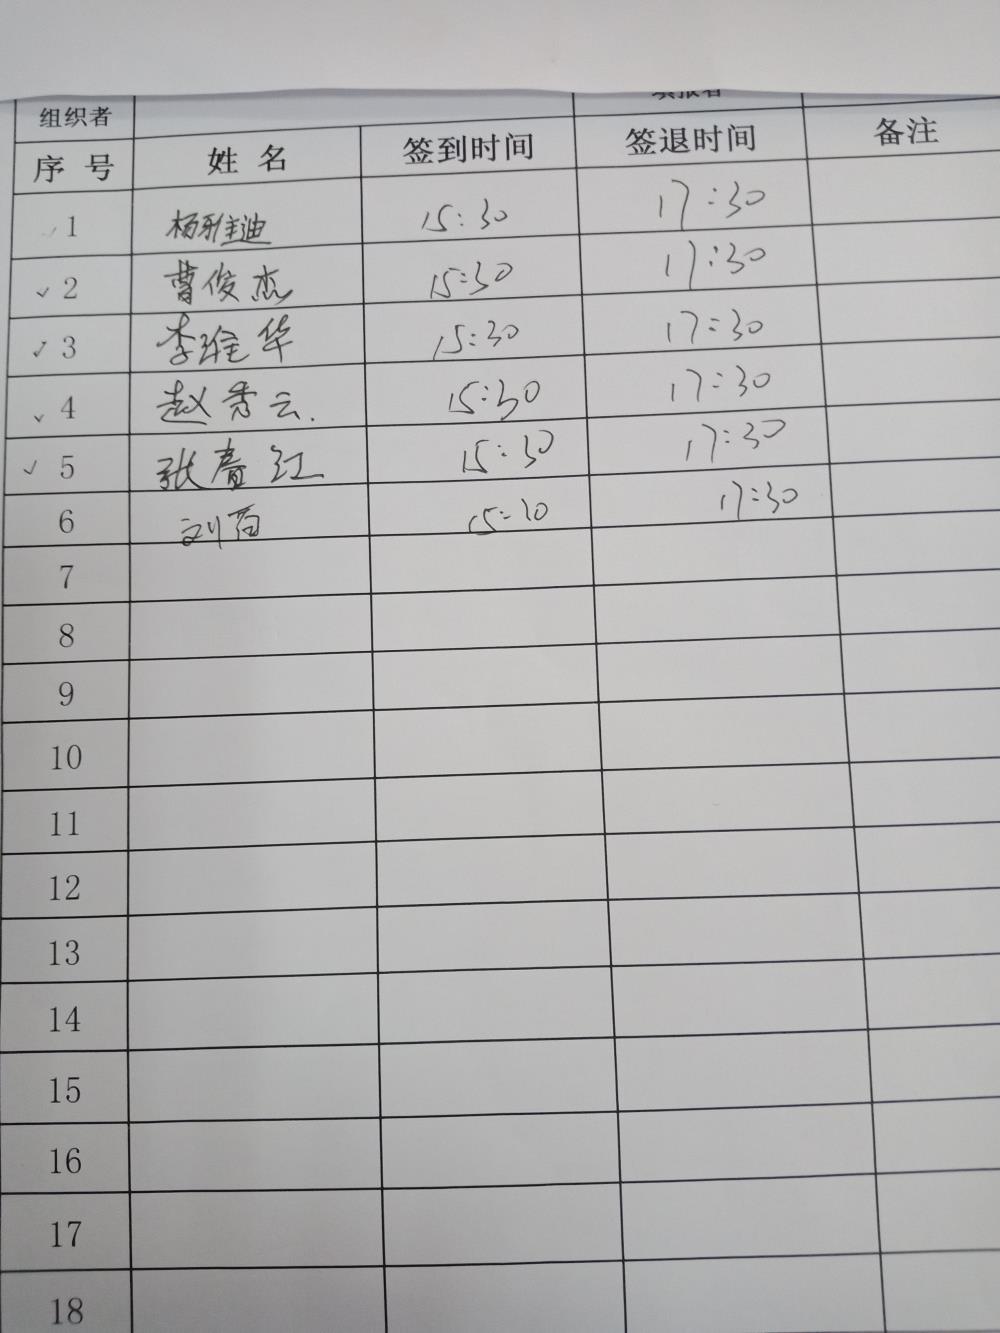 组织者
序号 姓名 签到时间 签退时间 备注
1 杨雅迪 15:30 17:30
2 曹俊杰 15:30 17:30
3 李维华 15:30 17:30
4 赵秀云. 15:30 17:30
5 张春红 15:30 17:30
6 刘 17:30
7
8
9
10
11
12
13
14
15
16
17
18